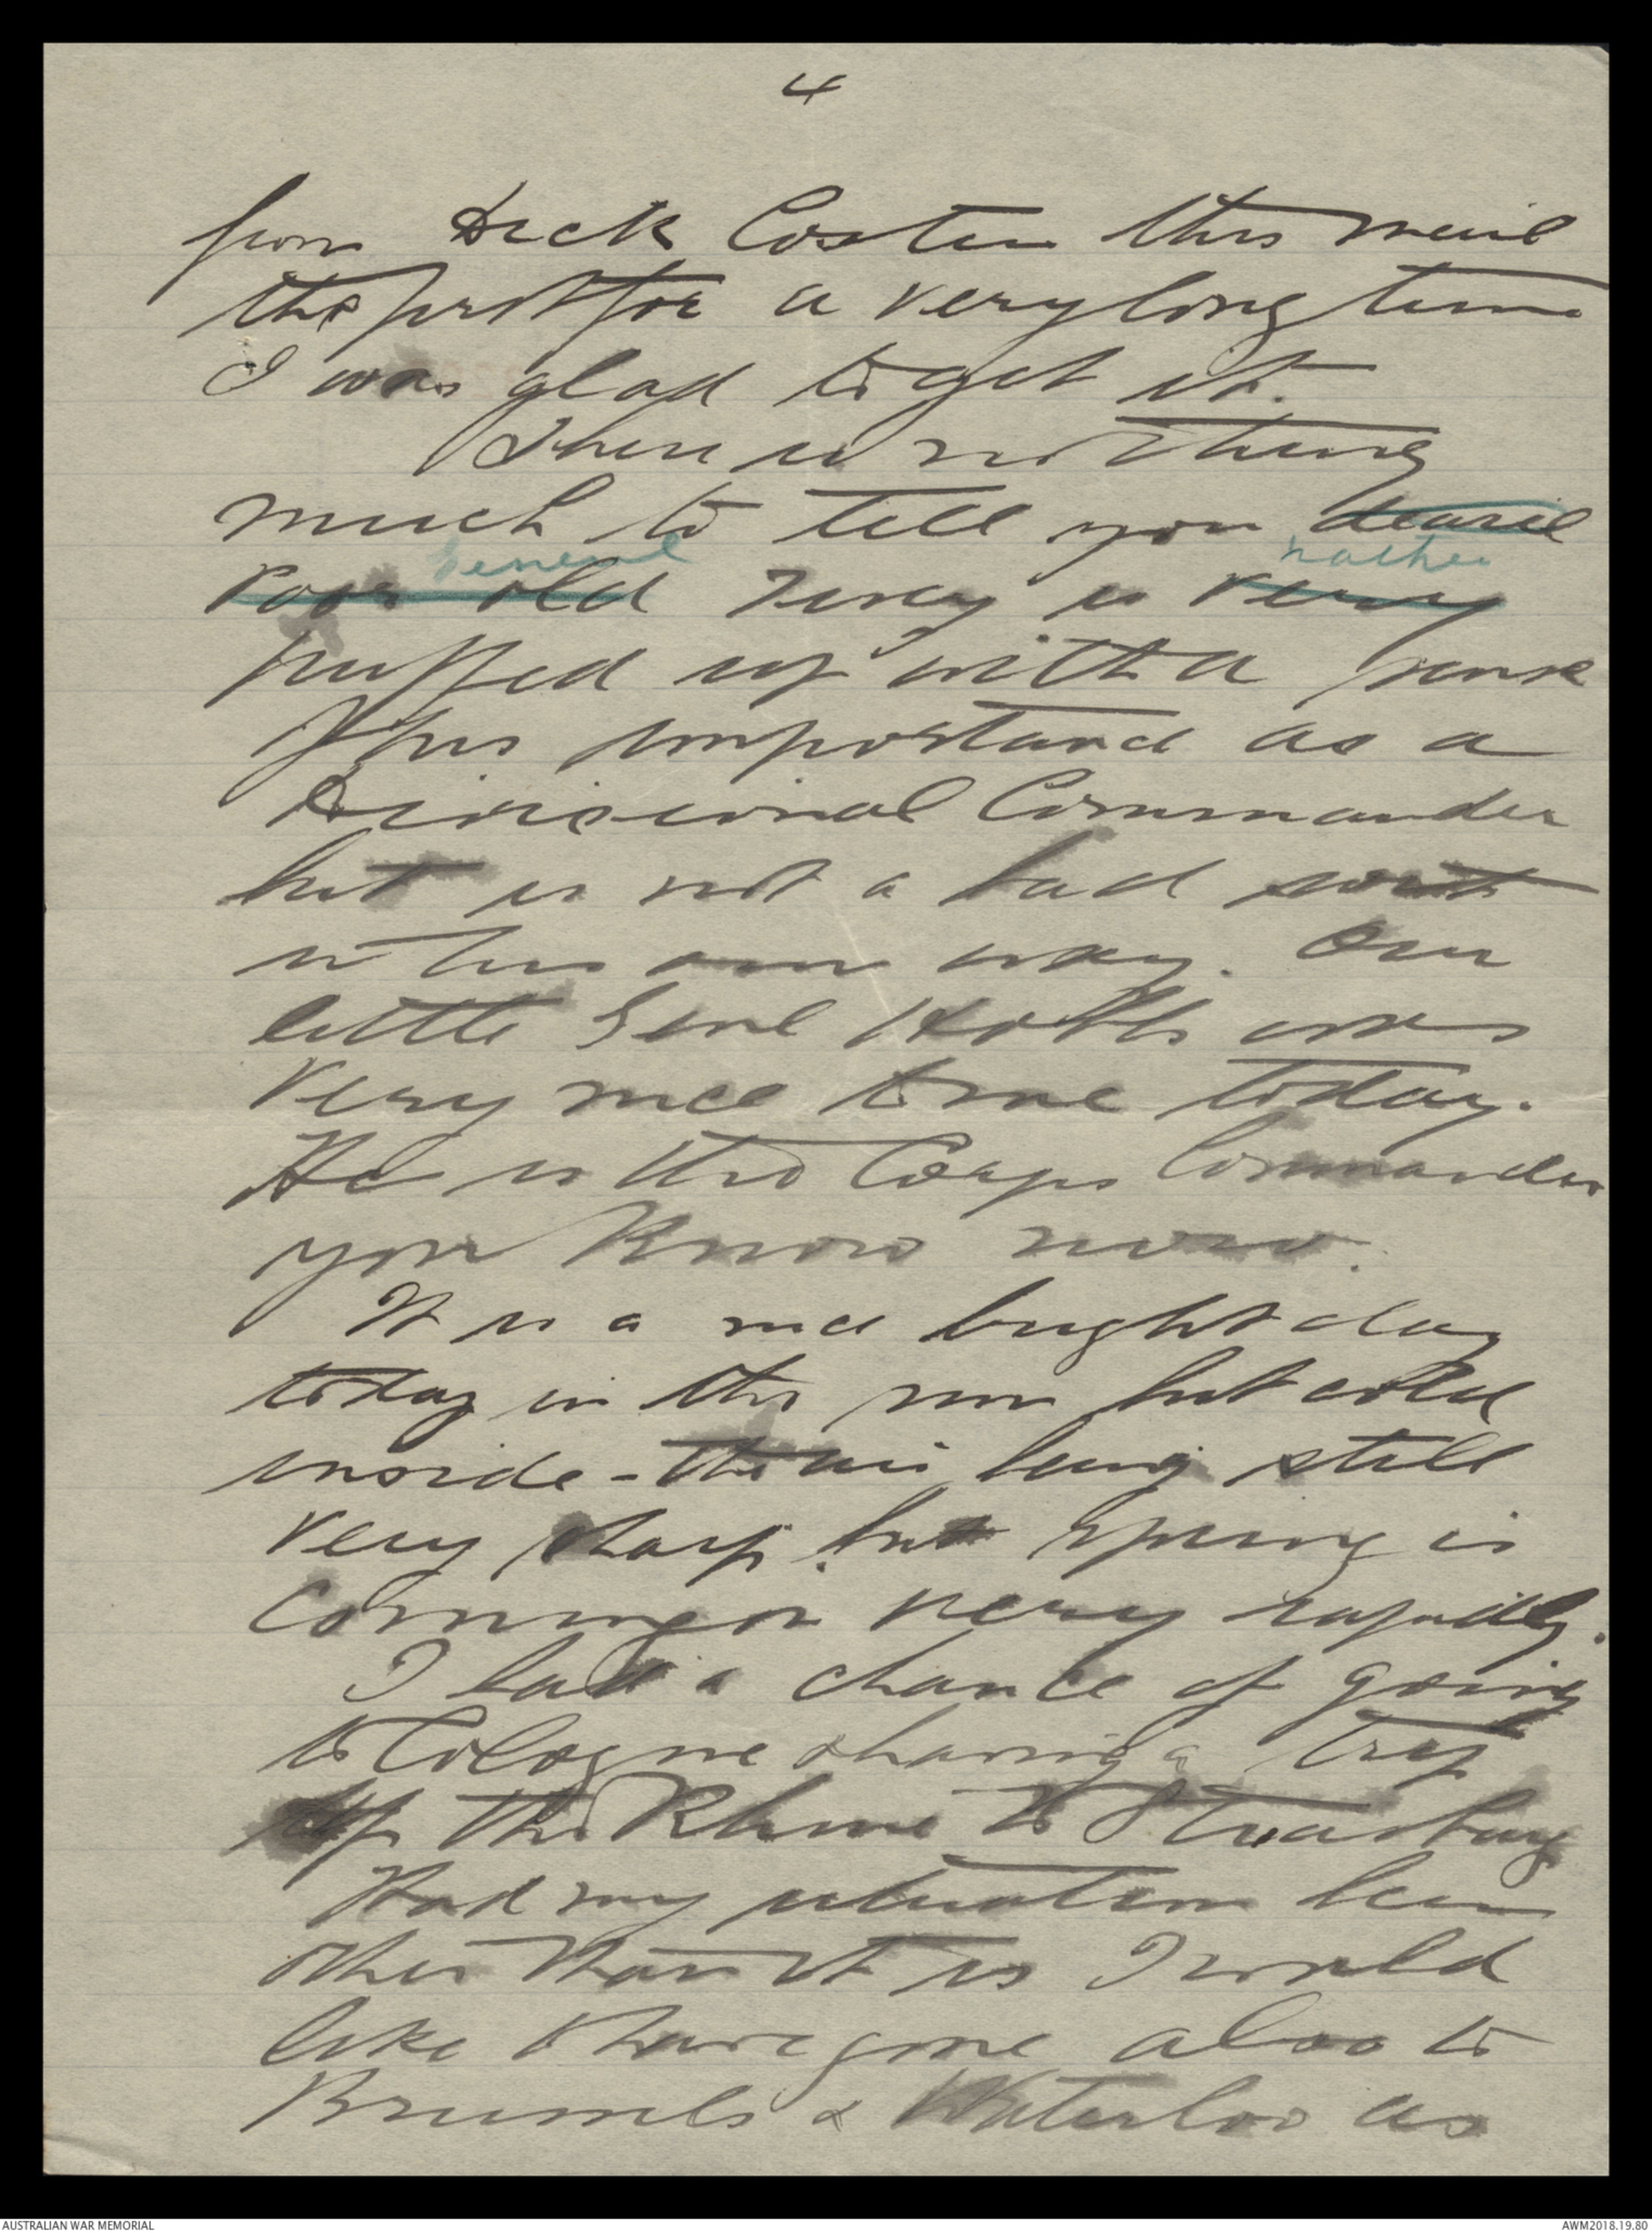 4
from Dick Coster this mail
the first for a very long time
I was glad to get it.
There is nothing
much to tell you dearie
General rather
Poor old Tivey is very
puffed up with a sense
of his importance as a
Divisional Commander
but is not a bad sort
in his own way. Our
little Genl Hobbs was
very nice to me today.
He is the Corps Commander
you know now.
It is a nice bright day
today in the sun but cold
inside - the air being still
very sharp. but spring is
coming on very rapidly.
I had a chance of going
to Cologne & having a trip
up the Rhine to Strasburg
Had my situation been
other than it is I would
like to have gone also to
Brussels & Waterloo as
AUSTRALIAN WAR MEMORIAL
AWM2018.19.80